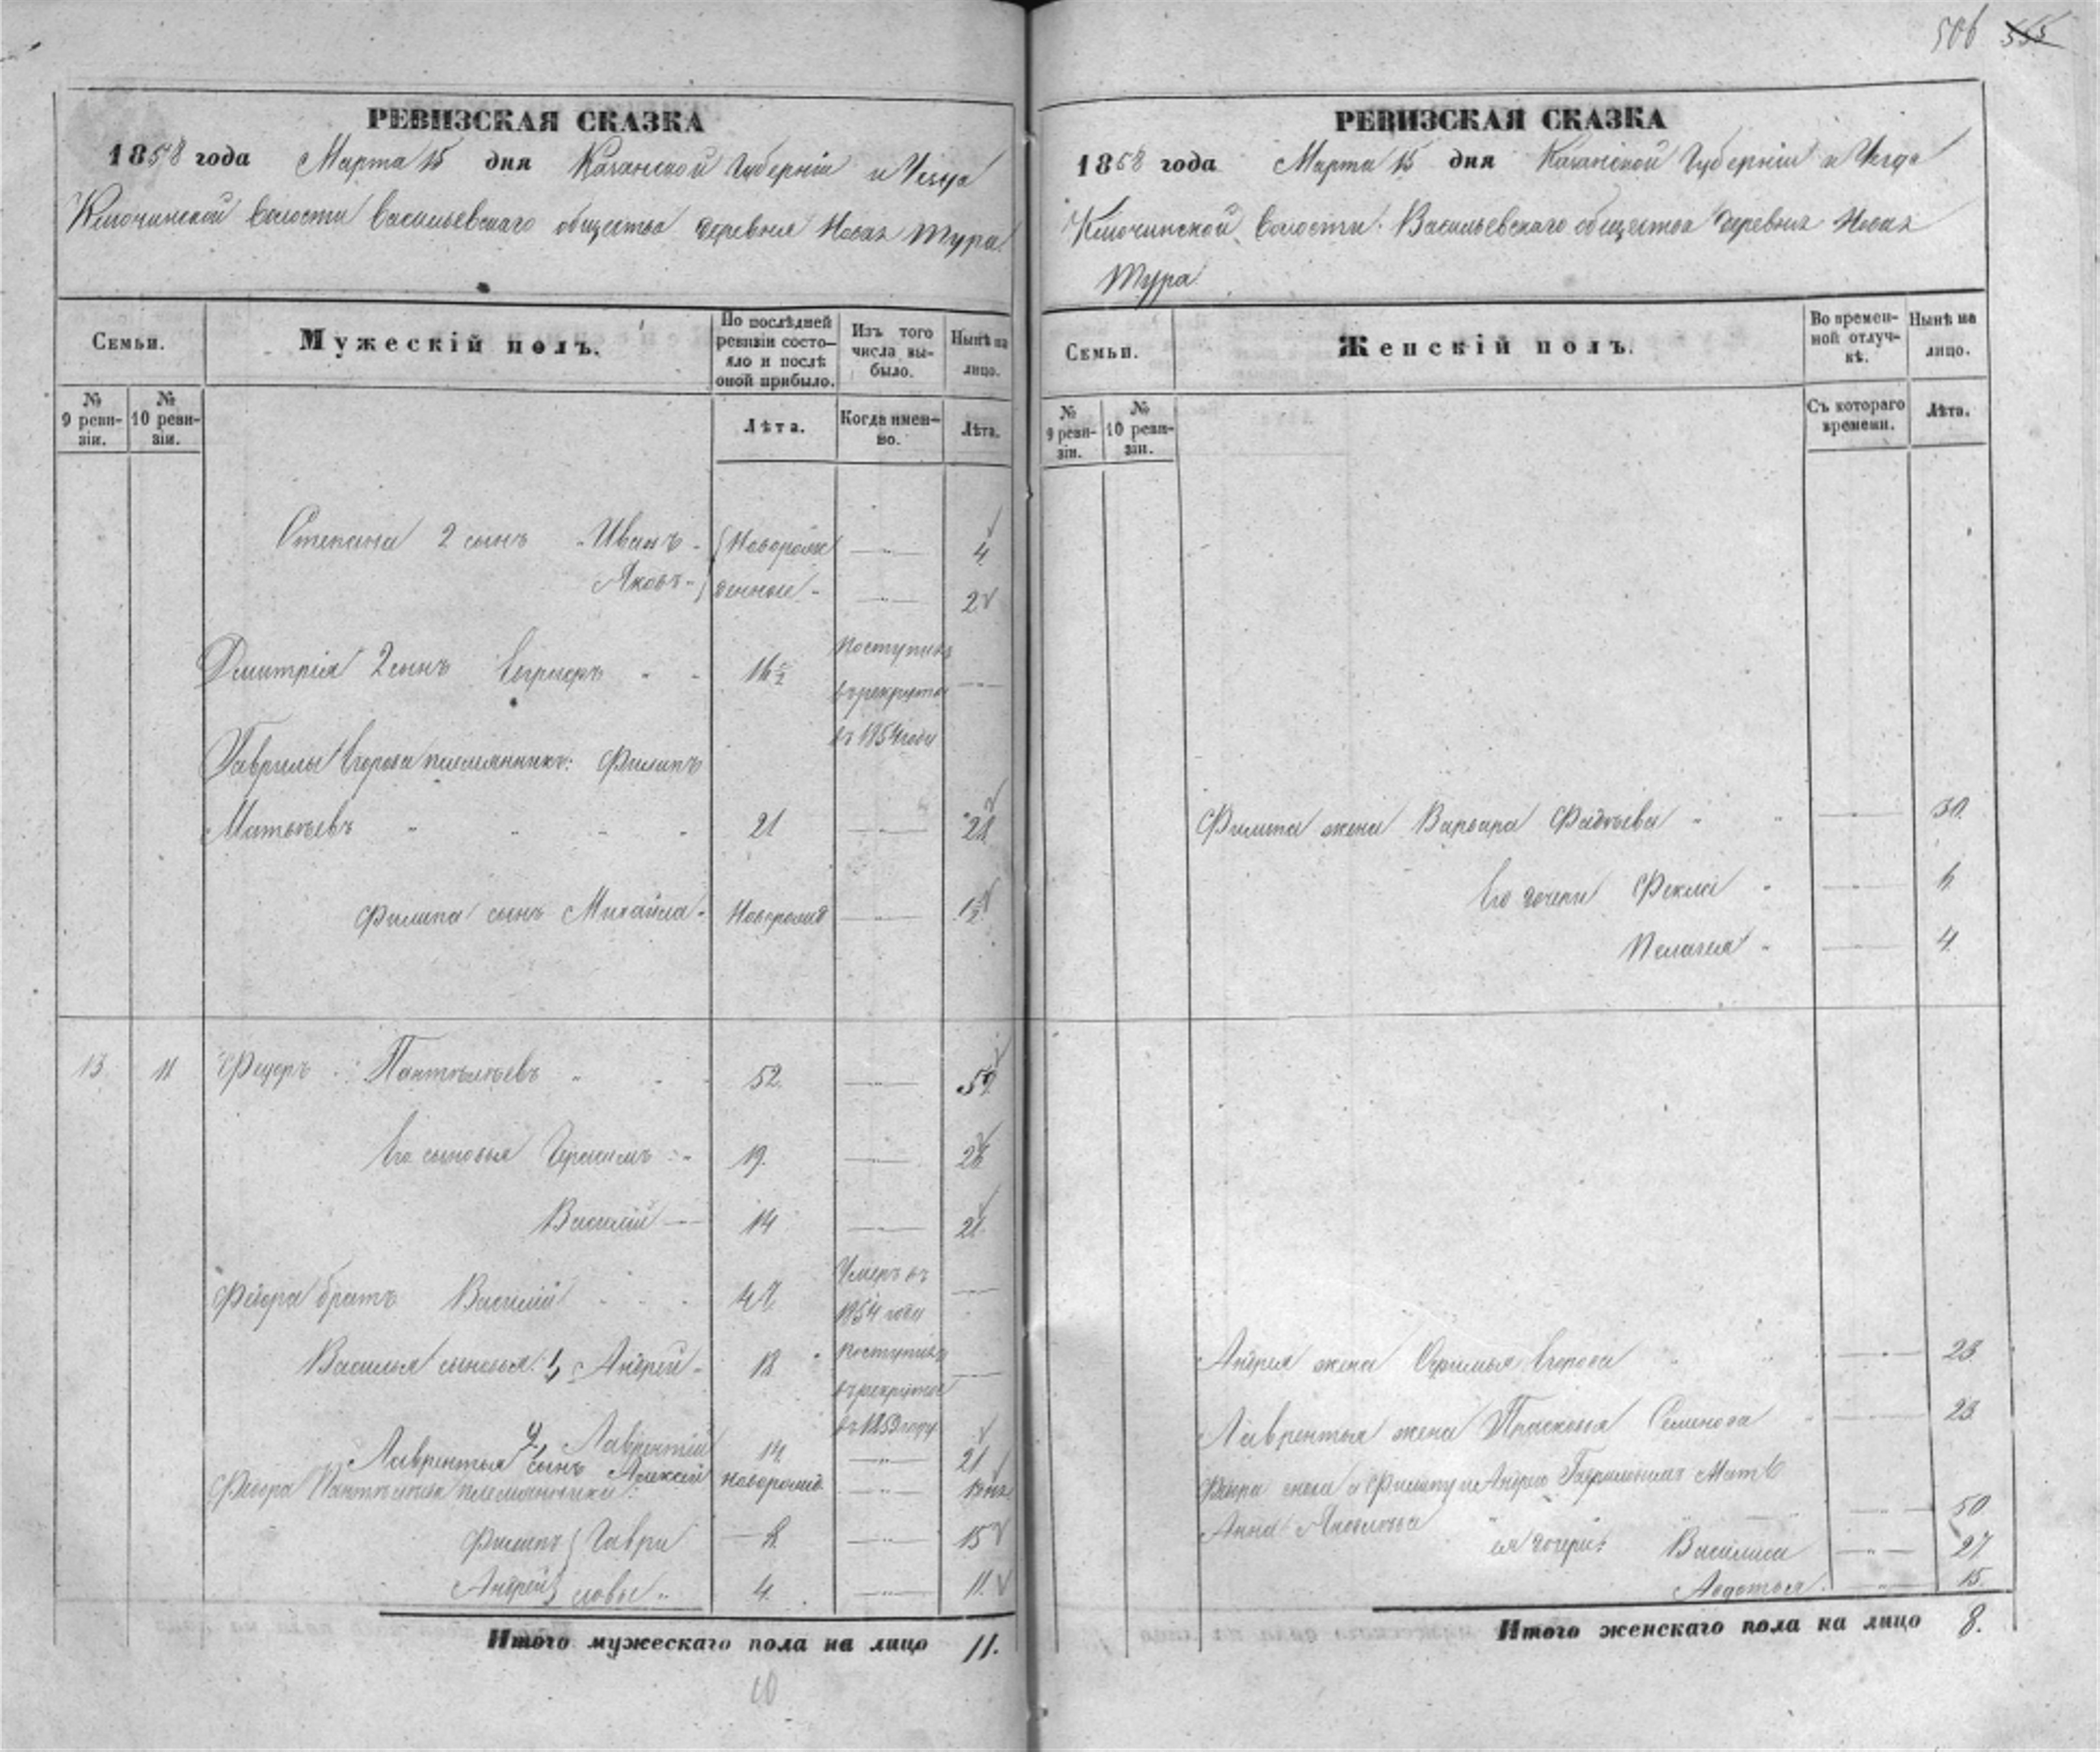 506 555
РЕВИЗСКАЯ СКАЗКА
1858 года Марта 15 дня Казанской Губерніи и Уезда
Ключинской Волости Васильевскаго общества деревня Новая Тура
Семьи.
Мужескій полъ.
По послѣдней ревизіи состояло и послѣ оной прибыло.
Изъ того числа выбыло.
Нынѣ на лицо.
№ 9 ревизіи.
№ 10 ревизіи.
Лѣта.
Когда именно.
Лѣта.
Степана 2 сынъ Иванъ Новорожденные 4
Яковъ 2
Дмитрія 2 сынъ Поступилъ въ рекруты въ 1854 году
Гаврилы Егорова племянникъ: Филипъ
Матвѣевъ 21 28
Филипа сынъ Михайла Новорожд 1/2
13 11 Федоръ Пантелѣевъ 52 59
Его сыновья Герасимъ 19 26
Василій 14 21
Федора братъ Василій 47 Умеръ въ 1854 году
Василья сыновья: 1, Андрей 18 Поступилъ въ рекруты въ 1853 году
2, Лаврентій 14 21
Лаврентья сынъ Алексѣй Новорожд
Федора Пантелѣева племянники:
Филипъ Гаври 8 15
Андрей ловы 4 11
Итого мужескаго пола на лицо 11.
10
РЕВИЗСКАЯ СКАЗКА
1858 года Марта 15 дня Казанской Губерніи и Уезда
Ключинской Волости Васильевскаго общества деревня Новая
Тура
Семьи.
Женскій полъ.
Во временной отлучкѣ.
Нынѣ на лицо.
№ 9 ревизіи.
№ 10 ревизіи.
Съ котораго времени.
Лѣта.
Филипа жена Варвара Фадѣева 30
Его дочери Фекла 6
Пелагея 4
Андрея жена Офимья Егорова 23
Лаврентья жена Прасковья Семенова 23
Федора сноха а Филипу и Андрею Гавриловымъ Мать
Анна Яковлева 50
ея дочери: Василиса 27
Авдотья 15
Итого женскаго пола на лицо 8.